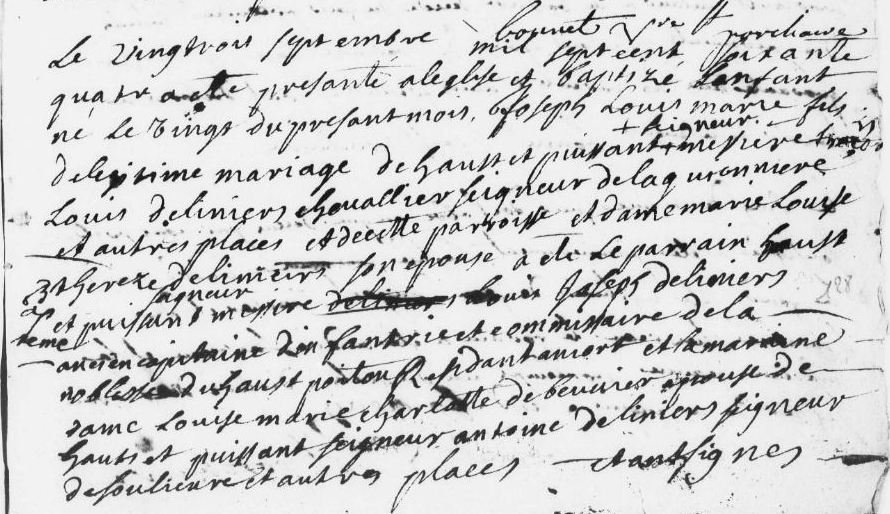 Le vingtrois septembre mil sept cent soixante
quatre a ete presanté a leglise et baptizé Lenfant
né Le vingt du presant mois, Joseph Louis marie fils
de legitime mariage de haust et puissant + messiere
+ seigneur
Louis deliniers chevallier seigneur de la guronniere
et autres places et de cette parroisse et dame marie Louise
thereze deliniers son epouse a ete Le parrain haust
et puissant messire Louis Joseph deliniers
seigneur
ancien capitaine dinfantrie et commissaire de la
noblesse du haust poitou Residant aniort et la maraine
dame Louise marie charlotte de beuvier epouse de
hauts et puissant seigneur antoine deliniers seigneur
de soulieure et autres places etantsignes